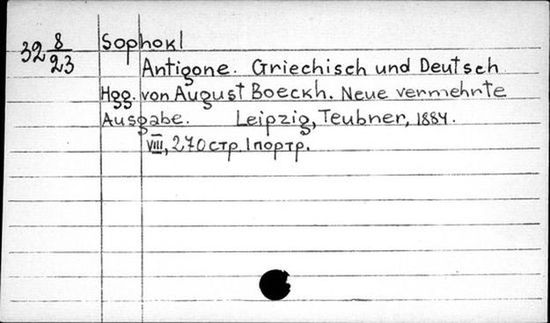 32 8/23
Sophokl
Antigone. Griechisch und Deutsch
Hgg. von August Boeckh. Neue vermehrte
Ausgabe. Leipzig, Teubner, 1884.
VIII, 270 стр. 1 портр.